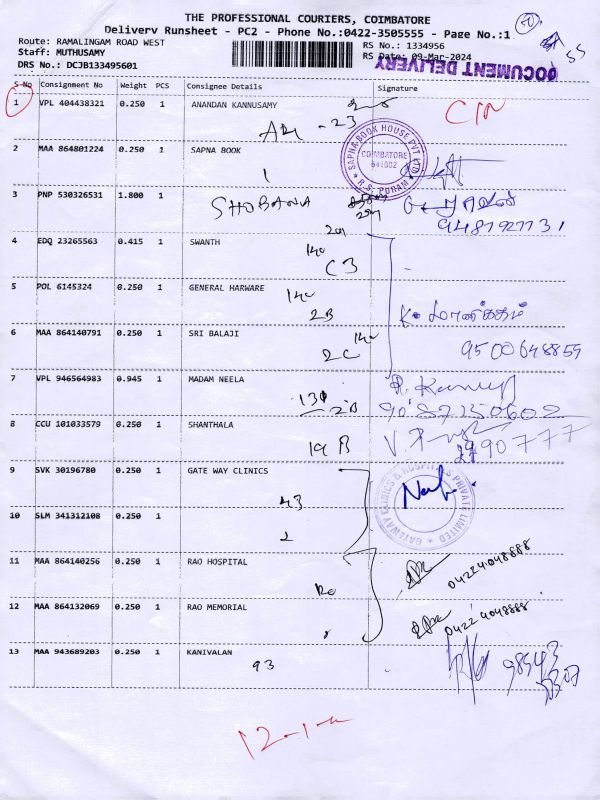 THE PROFESSIONAL COURIERS, COIMBATORE
Delivery Runsheet - PC2 - Phone No.:0422-3505555 - Page No.:1
Route: RAMALINGAM ROAD WEST
Staff: MUTHUSAMY
DRS No.: DCJB133495601
RS No.: 1334956
RS Date: 09-Mar-2024
DOCUMENT DELIVERY
55
S No Consignment No Weight PCS Consignee Details Signature
1 VPL 404438321 0.250 1 ANANDAN KANNUSAMY
23
2 MAA 864801224 0.250 1 SAPNA BOOK
SAPNA BOOK HOUSE PVT LTD
COIMBATORE
641002
R.S. PURAM
3 PNP 530326531 1.800 1
SHOBANA
201
9487927731
4 EDQ 23265563 0.415 1 SWANTH
C3
5 POL 6145324 0.250 1 GENERAL HARWARE
2B
6 MAA 864140791 0.250 1 SRI BALAJI
2C
9500648859
7 VPL 946564983 0.945 1 MADAM NEELA
2B
9087150602
8 CCU 101033579 0.250 1 SHANTHALA
19 B
90777
9 SVK 30196780 0.250 1 GATE WAY CLINICS
43
GATEWAY CLINICS & HOSPITALS PRIVATE LIMITED
10 SLM 341312108 0.250 1
2
11 MAA 864140256 0.250 1 RAO HOSPITAL
04224048888
12 MAA 864132069 0.250 1 RAO MEMORIAL
04224048888
13 MAA 943689203 0.250 1 KANIVALAN
93